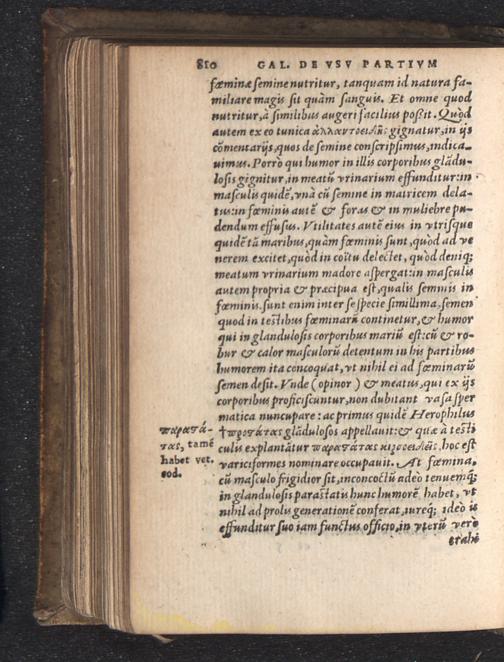 810 GAL. DE VSV PARTIVM
fœminæ semine nutritur, tanquam id natura fa-
miliare magis sit quàm sanguis. Et omne quod
nutritur, à similibus augeri facilius poßit. Quòd
autem ex eo tunica ἀλλαντοειδὴς gignatur, in ijs
cõmentarijs, quos de semine conscripsimus, indica-
uimus. Porrò qui humor in illis corporibus glãdu-
losis gignitur, in meatũ vrinarium effunditur: in
masculis quidẽ, vnà cũ semine in matricem dela-
tus: in fœminis autẽ & foras & in muliebre pu-
dendum effusus. Vtilitates autẽ eius in vtrisque
quidẽ tã maribus, quàm fœminis sunt, quòd ad ve
nerem excitet, quòd in coïtu delectet, quòd deniq;
meatum vrinarium madore aspergat: in masculis
autem propria & præcipua est, qualis seminis in
fœminis. sunt enim inter se specie simillima, semen
quod in testibus fœminarũ continetur, & humor
qui in glandulosis corporibus mariũ est: cũ & ro-
bur & calor masculorũ detentum in his partibus
humorem ita concoquat, vt nihil ei ad fœminarũ
semen desit. Vnde (opinor) & meatus, qui ex ijs
corporibus proficiscuntur, non dubitant vasa sper
matica nuncupare: ac primus quidẽ Herophilus
†προστάτας glãdulosos appellauit: & quæ à testi
culis explantãtur παραστάτας κιρσοειδεῖς, hoc est
varicìformes nominare occupauit. At fœmina,
cũ masculo frigidior sit, inconcoctũ adeò tenuemq́;
in glandulosis parastatis hunc humorẽ habet, vt
nihil ad prolis generationẽ conferat, iureq́; ideo is
effunditur suo iam functus officio, in vterũ vero
trahi
παραστά-
τας, tamẽ
habet vet.
cod.